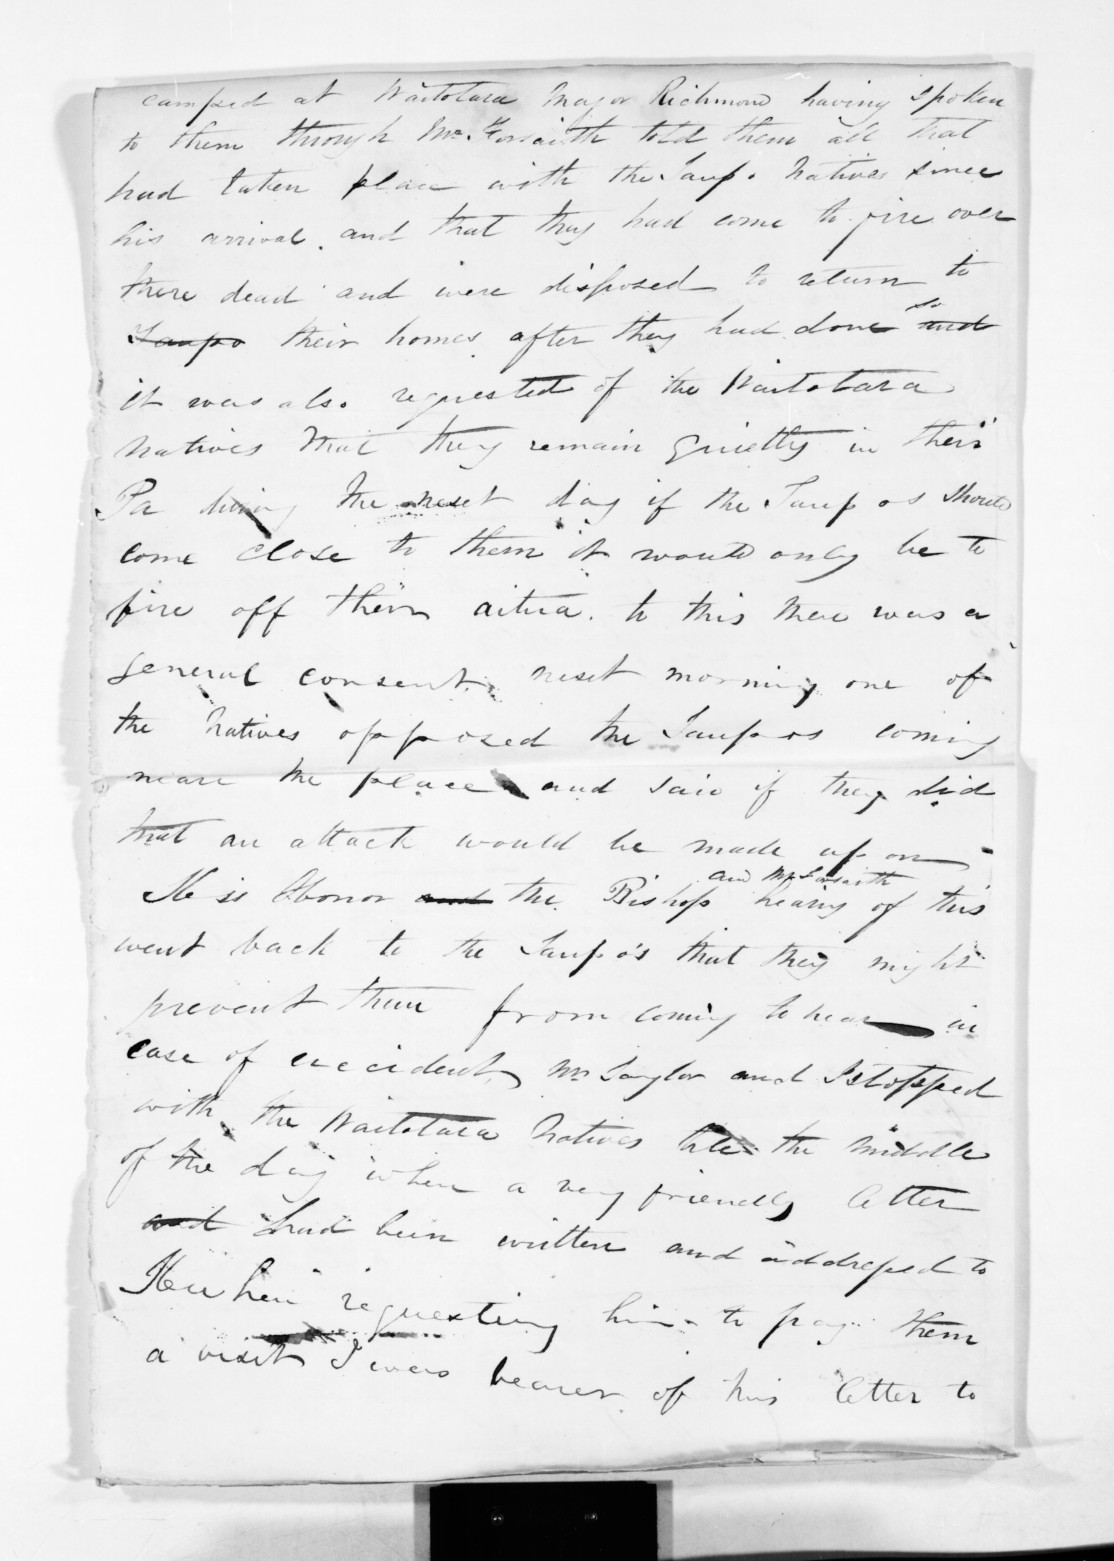 camped at Waitotara Major Richmond having spoken
to them through Mr Forsaith told them all that
had taken place with the Taupo Natives since
his arrival. and that they had come to fire over
there dead and were disposed to return to
Taupo their homes after they had done so and
it was also requested of the Waitotara
natives that they remain quietly in their
Pa during the next day if the Taupos should
come close to them it would only be to
fire off their aitua. to this there was a
general consent, next morning one of
the Natives opposed the Taupos coming
near the place and said if they did
that an attack would be made upon
His Honor and the Bishop and Mr Forsaith hearing of this
went back to the Taupo's that they might
prevent them from coming to near in
case of accident, Mr Taylor and I stopped
with the Waitotara Natives till the middle
of the day when a very friendly letter
and had been written and addressed to
Heu heu requesting him to pay them
a visit I was bearer of this letter to